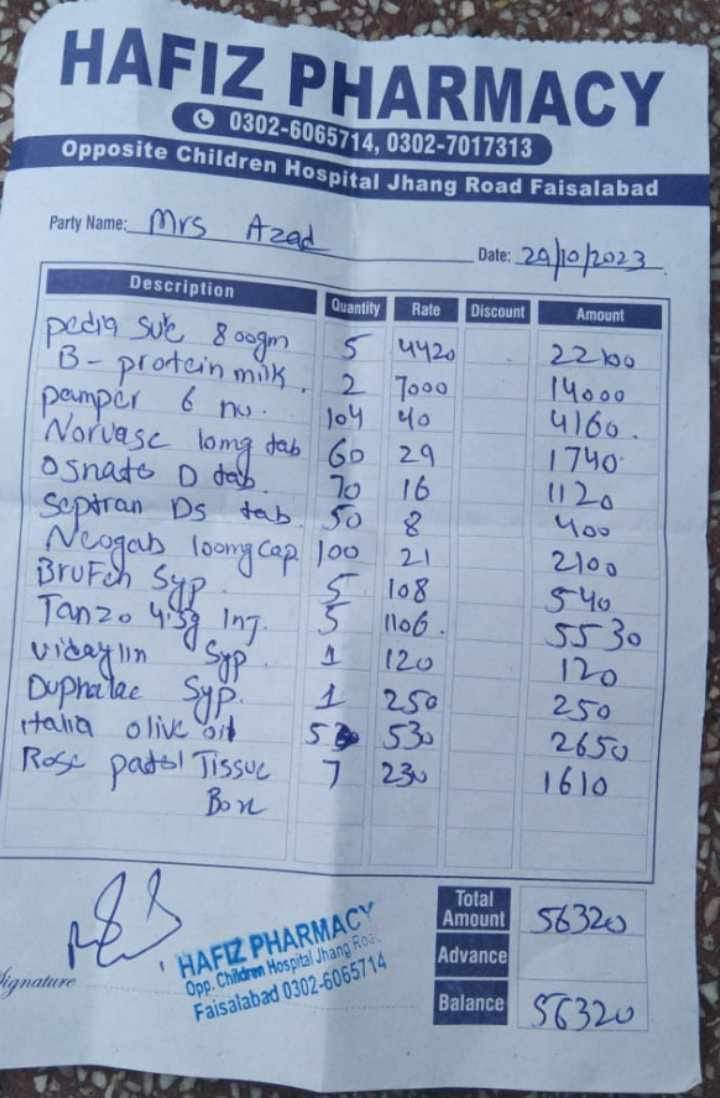 HAFIZ PHARMACY
0302-6065714, 0302-7017313
Opposite Children Hospital Jhang Road Faisalabad
Party Name: Mrs Azad
Date: 29/10/2023
Description Quantity Rate Discount Amount
pedia sure 800gm 5 4420 22100
B-protein milk. 2 7000 14000
pamper 6 no. 104 40 4160.
Norvasc 10mg tab 60 29 1740
Osnate D tab. 70 16 1120
Septran DS tab. 50 8 400
Neogab 100mg cap 100 21 2100
Brufen Syp. 5 108 540
Tanzo 4.5g Inj. 5 1106. 5530
vidaylin Syp. 1 120 120
Duphalac Syp. 1 250 250
italia olive oil 5 530 2650
Rose patel Tissue 7 230 1610
Box
Total Amount 56320
Advance
Balance 56320
Signature
HAFIZ PHARMACY
Opp. Children Hospital Jhang Road
Faisalabad 0302-6065714